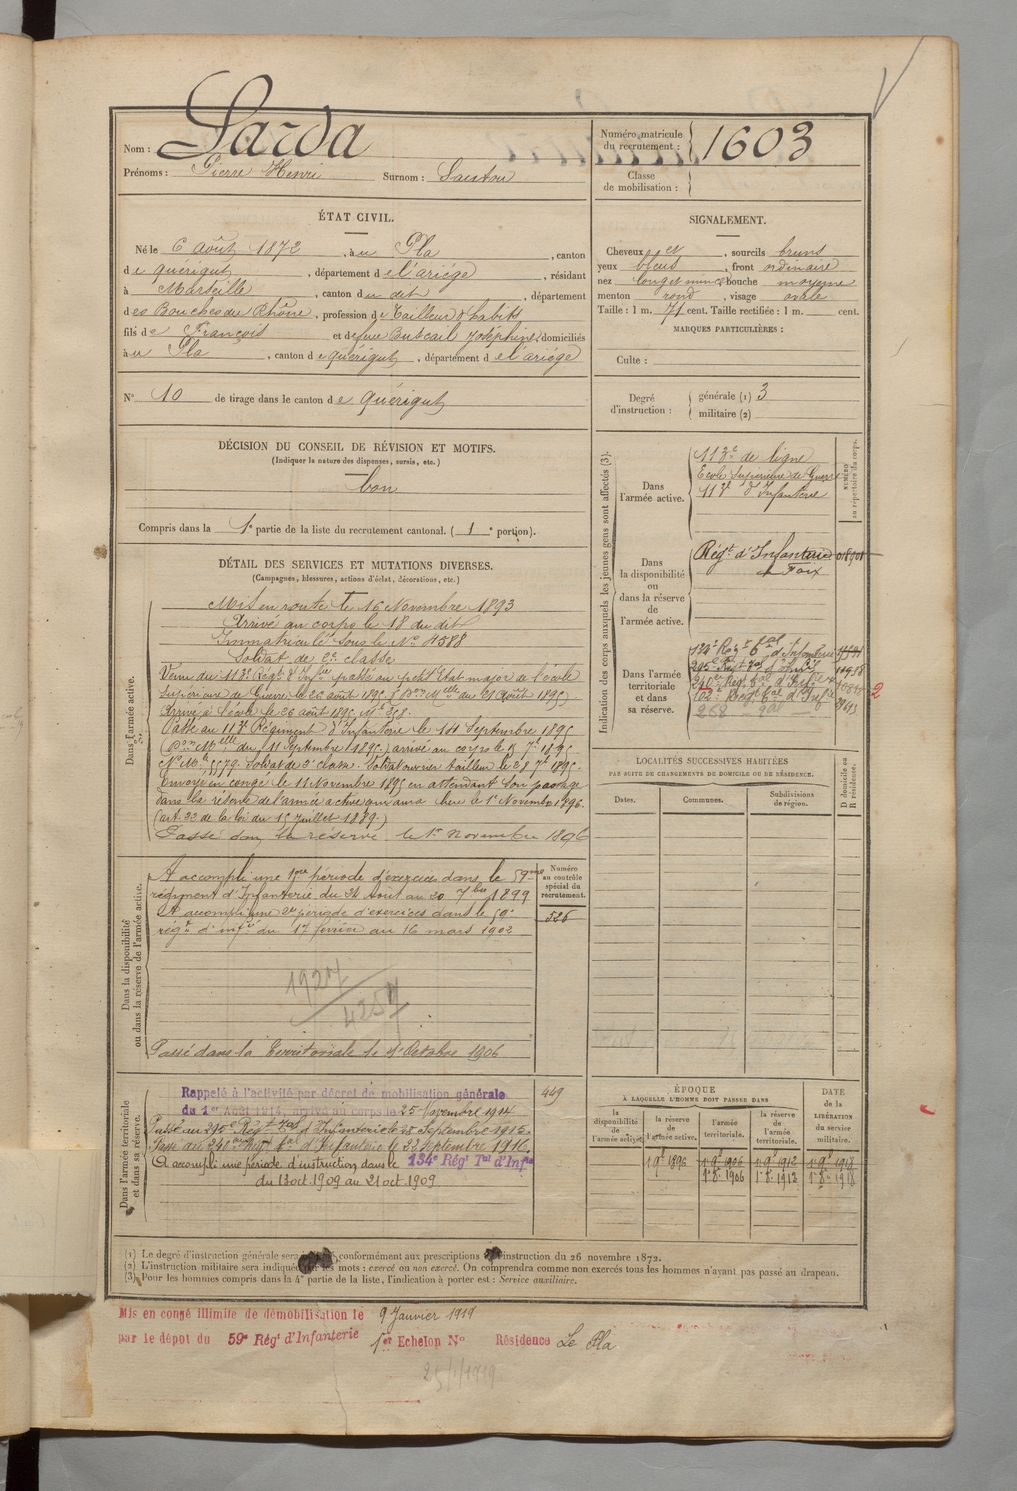 Nom : Sarda
Prénoms : Pierre Henri Surnom :
ÉTAT CIVIL.
Né le 6 août 1872, à u Pla, canton
de quérigut, département de l'ariége, résidant
à Marseille, canton du dit, département
des Bouches du Rhône, profession de tailleur d'habits
fils de François et de feue Buscail Joséphine, domiciliés
à u Pla, canton de quérigut, département de l'ariége
N° 10 de tirage dans le canton de quérigut
DÉCISION DU CONSEIL DE RÉVISION ET MOTIFS.
(Indiquer la nature des dispenses, sursis, etc.)
bon
Compris dans la 1e partie de la liste du recrutement cantonal. (1e portion).
DÉTAIL DES SERVICES ET MUTATIONS DIVERSES.
(Campagnes, blessures, actions d'éclat, décorations, etc.)
Dans l'armée active.
Mis en route le 16 Novembre 1893
Arrivé au corps le 18 du dit
Immatriculé sous le No 4588
Soldat de 2e classe
Venu du 113e Régt d'Infie passé au petit État major de l'école
supérieure de Guerre le 26 août 1895 (Don Mlle du 21 août 1895)
Arrivé à l'école le 26 août 1895 Mle 358.
Passé au 113e Régiment d'Infanterie le 11 Septembre 1895
(Don Mlle du 11 Septembre 1895) arrivé au corps le 15 7bre 1895
No Mle 5579. Soldat de 2e classe. Soldat ouvrier tailleur le 28 7bre 1895.
Envoyé en congé le 11 Novembre 1895 en attendant son passage
dans la réserve de l'armée active qui aura lieu le 1er Novembre 1896.
(art. 22 de la loi du 15 juillet 1889.)
Passé dans la réserve le 1er Novembre 1896
Dans la disponibilité
ou dans la réserve de l'armée active.
A accompli une 1ère période d'exercices dans le 59ème
régiment d'Infanterie du 24 août au 20 7bre 1899
et accompli une 2e période d'exercices dans le 59e
régt d'infie du 17 février au 16 mars 1902
1927
4257
Passé dans la territoriale le 1er Octobre 1906
Numéro
au contrôle
spécial du
recrutement.
526
Dans l'armée territoriale
et dans sa réserve.
Rappelé à l'activité par décret de mobilisation générale
du 1er Août 1914, arrivé au corps le 25 Novembre 1914
Passé au 215e Régt Tal d'Infanterie le 25 Septembre 1915.
Passé au 240ème Régt Tal d'Infanterie le 22 Septembre 1916.
A accompli une période d'instruction dans le 134e Régt Tal d'Infie
du 13 oct. 1909 au 21 oct. 1909
449
Numéro matricule
du recrutement : 1603
Classe
de mobilisation :
SIGNALEMENT.
Cheveux et, sourcils bruns
yeux bleus, front ordinaire
nez long et mince, bouche moyenne
menton rond, visage ovale
Taille : 1 m. 71 cent. Taille rectifiée : 1 m. cent.
MARQUES PARTICULIÈRES :
Culte :
Degré
d'instruction :
générale (1) 3
militaire (2)
Indication des corps auxquels les jeunes gens sont affectés (3).
NUMÉRO
au répertoire du corps.
Dans
l'armée active.
113e de ligne
Ecole Supérieure de Guerre
113e d'Infanterie
Dans
la disponibilité
ou
dans la réserve
de
l'armée active.
Régt d'Infanterie 01890
de Foix
Dans l'armée
territoriale
et dans
sa réserve.
134e Régt Tal d'Infanterie
215e Régt Tal d'Infie
240e Régt Tal d'Infie
102e Régt Tal d'Infie
258
2
LOCALITÉS SUCCESSIVES HABITÉES
PAR SUITE DE CHANGEMENTS DE DOMICILE OU DE RÉSIDENCE.
Dates.
Communes.
Subdivisions
de région.
D domicile ou
R résidence.
ÉPOQUE
À LAQUELLE L'HOMME DOIT PASSER DANS
la
disponibilité
de
l'armée active.
la réserve
de
l'armée active.
l'armée
territoriale.
la réserve
de
l'armée
territoriale.
DATE
de la
LIBÉRATION
du service
militaire.
1 9bre 1896 1er 9bre 1906 1er 9bre 1912 1er 9bre 1918
1er 8bre 1906 1er 8bre 1912 1er 8bre 1918
(1) Le degré d'instruction générale sera conformément aux prescriptions instruction du 26 novembre 1872.
(2) L'instruction militaire sera indiquée les mots : exercé ou non exercé. On comprendra comme non exercés tous les hommes n'ayant pas passé au drapeau.
(3) Pour les hommes compris dans la 4e partie de la liste, l'indication à porter est : Service auxiliaire.
Mis en congé illimité de démobilisation le 9 Janvier 1919
par le dépôt du 59e Régt d'Infanterie 1er Echelon No Résidence Le Pla
25/1/1919